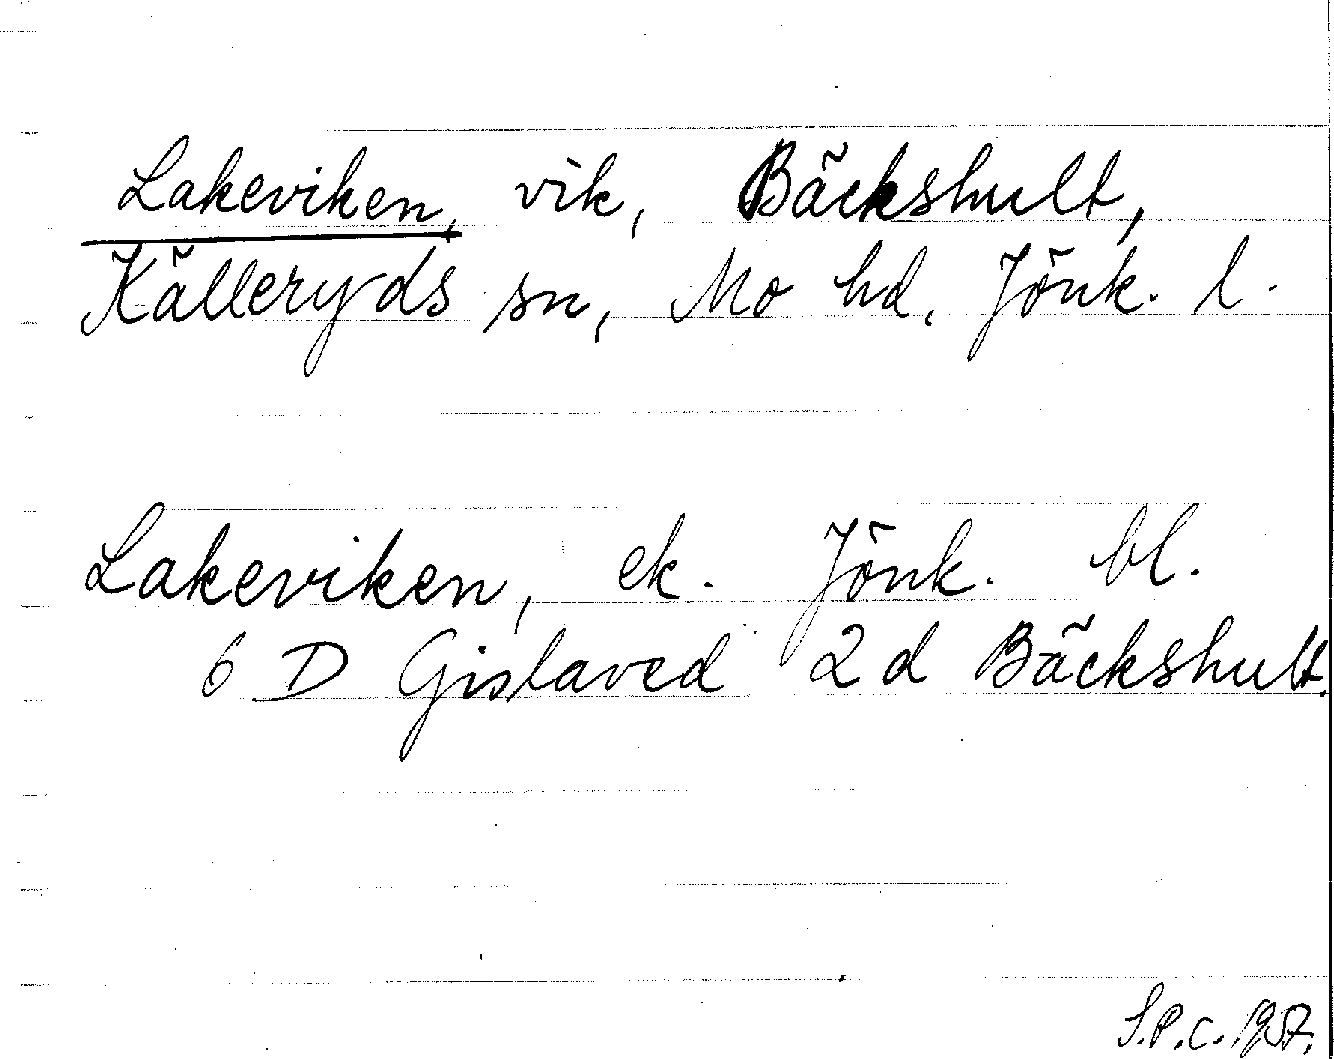 Lakeviken, vik, Bäckshult,
Källeryds sn, Mo hd, Jönk. l.
Lakeviken, ek. Jönk. bl.
6 D Gislaved 2 d Bäckshult.
S.P.C. 1957.